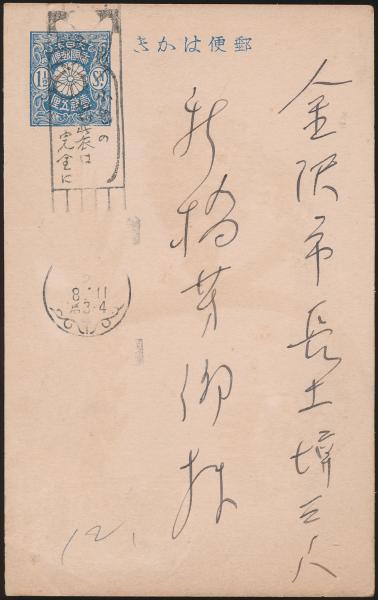 郵便はかき
大日本
帝國郵便
1½
SN.
壹銭五厘
の
包装は
完全に
8. 11
3-4
金沢市長土塀三ノ八
新橋芳仰様
12.